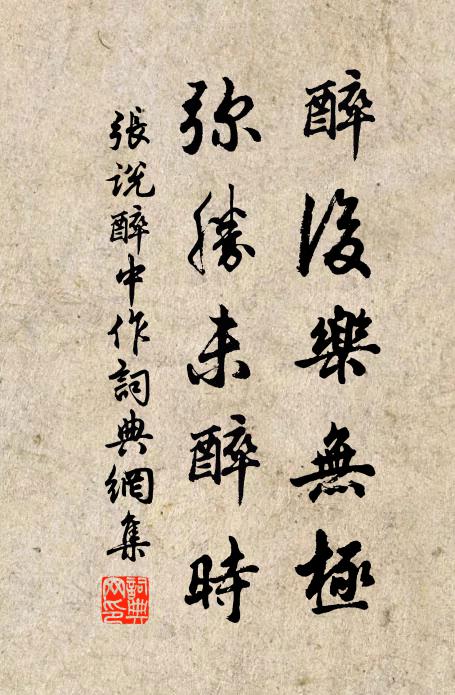 醉後樂無極
弥勝未醉時
張說醉中作詞典網集
詞典网印